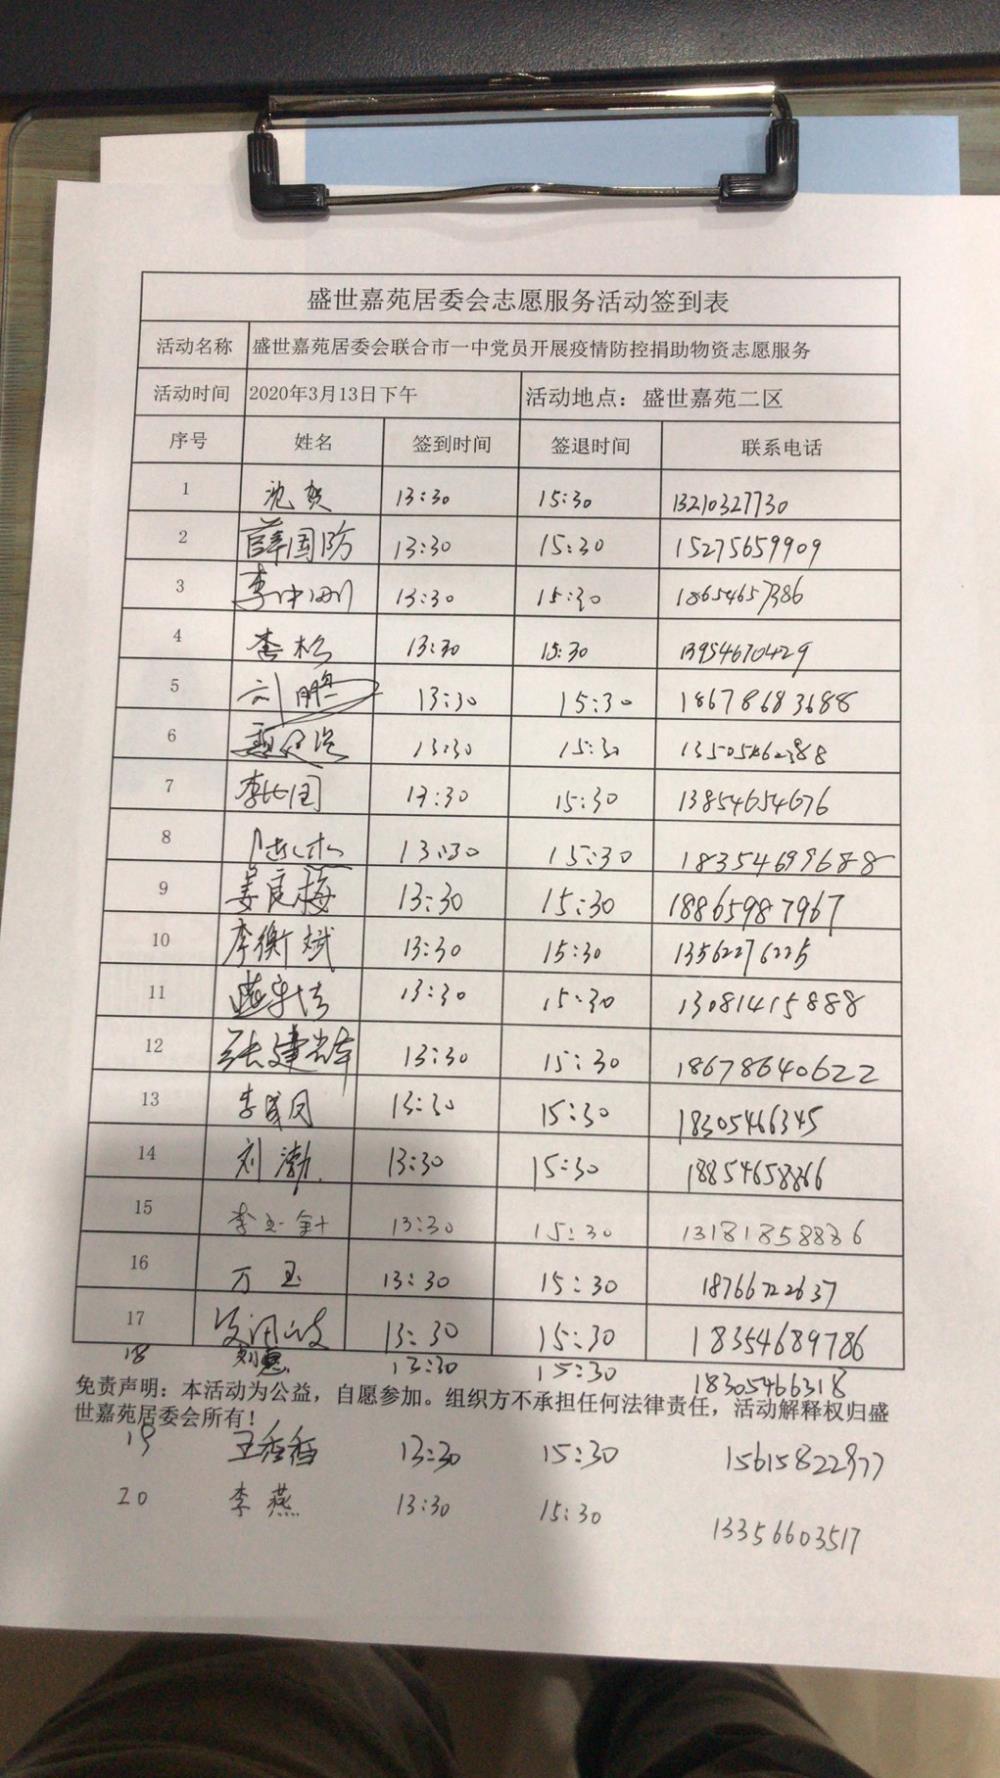 盛世嘉苑居委会志愿服务活动签到表
活动名称 盛世嘉苑居委会联合市一中党员开展疫情防控捐助物资志愿服务
活动时间 2020年3月13日下午 活动地点：盛世嘉苑二区
序号 姓名 签到时间 签退时间 联系电话
1 沈贺 13:30 15:30 13210327730
2 薛国防 13:30 15:30 15275659909
3 13:30 15:30 18654657386
4 李松 13:30 15:30 13954670429
5 刘鹏 13:30 15:30 18678683688
6 13:30 15:30 13505462388
7 13:30 15:30 13854654676
8 13:30 15:30 18354699688
9 姜良梅 13:30 15:30 18865987967
10 李衡斌 13:30 15:30 13562276225
11 13:30 15:30 13081415888
12 张建 13:30 15:30 18678640622
13 李成凤 13:30 15:30 18305466345
14 刘渤 13:30 15:30 18854658366
15 李玉針 13:30 15:30 13181858836
16 万玉 13:30 15:30 18766722637
17 13:30 15:30 18354689786
18 刘惠 13:30 15:30 18305466318
免责声明：本活动为公益，自愿参加。组织方不承担任何法律责任，活动解释权归盛
世嘉苑居委会所有！
19 王香香 13:30 15:30 15615822977
20 李燕 13:30 15:30 13356603517